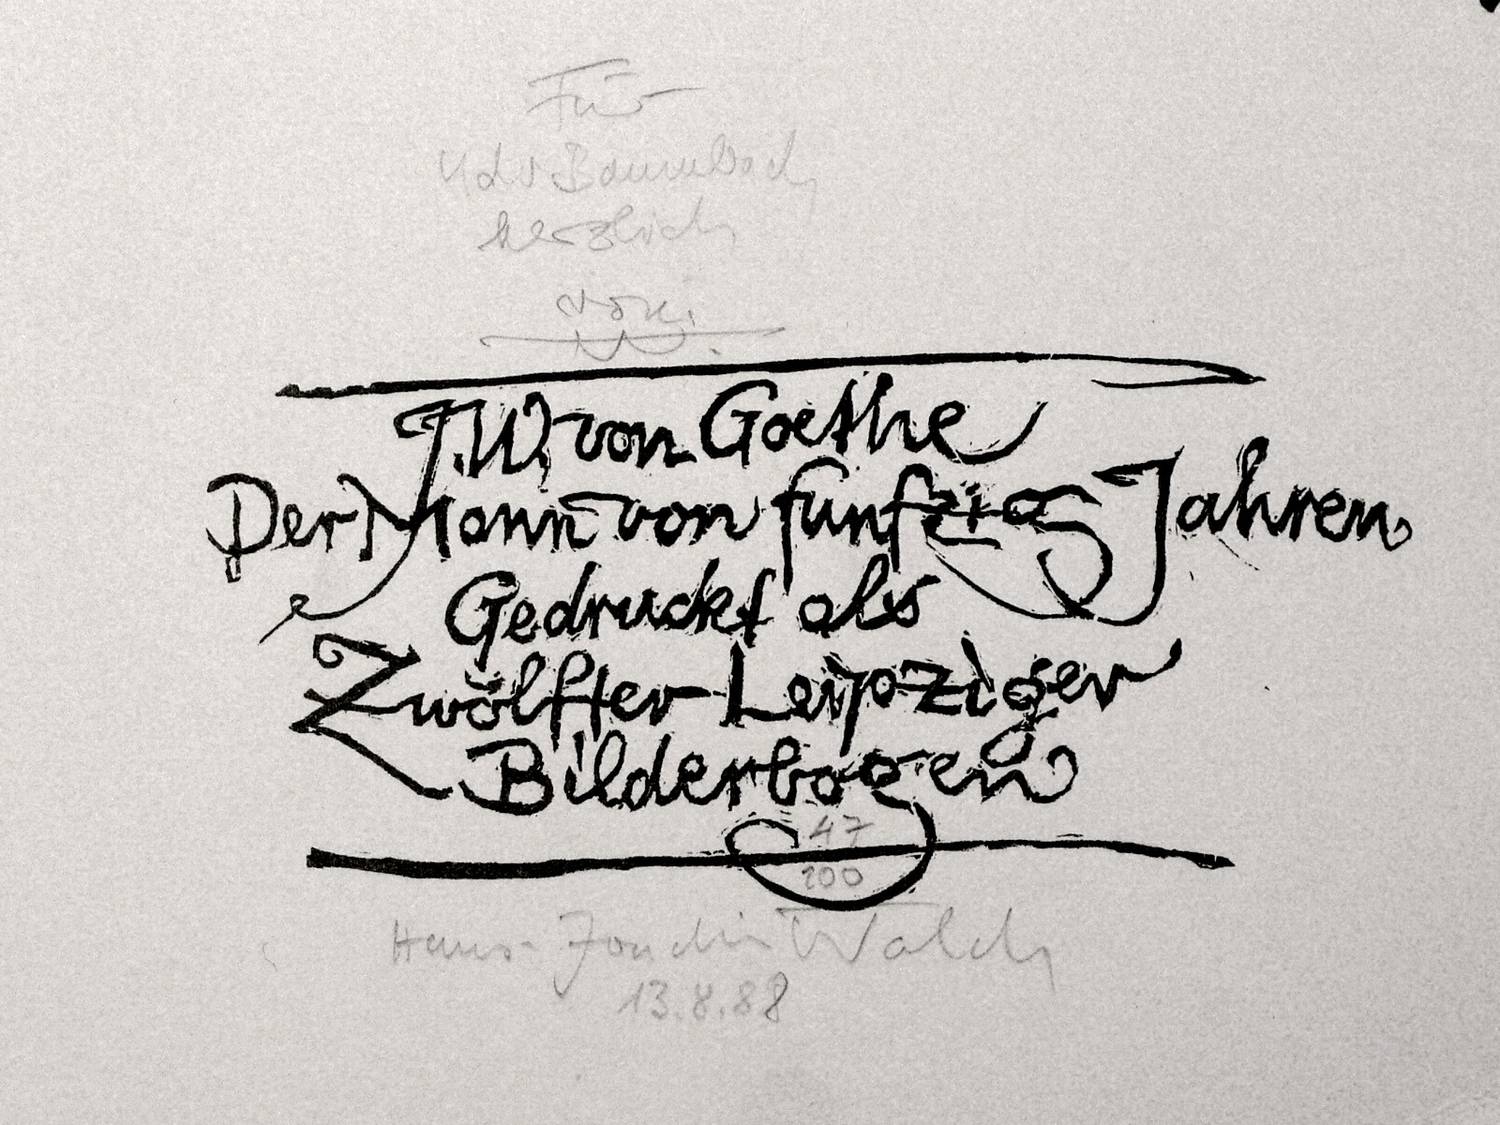 Für
Udo Baumbach
herzlich
von:
J. W. von Goethe
Der Mann von funfzig Jahren
Gedruckt als
Zwölfter Leipziger
Bilderbogen
47
100
Hans-Joachim Walch
13.8.88